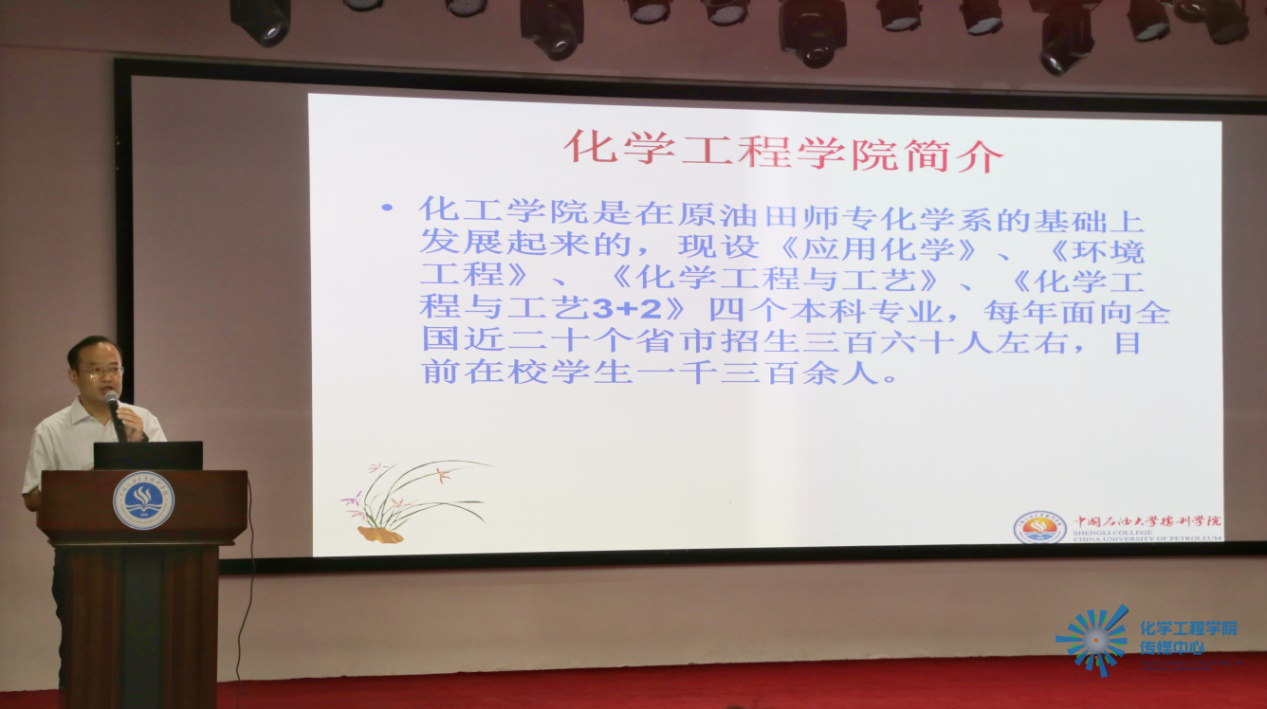 化学工程学院简介
• 化工学院是在原油田师专化学系的基础上
发展起来的，现设《应用化学》、《环境
工程》、《化学工程与工艺》、《化学工
程与工艺3+2》四个本科专业，每年面向全
国近二十个省市招生三百六十人左右，目
前在校学生一千三百余人。
中国石油大学胜利学院
SHENGLI COLLEGE
CHINA UNIVERSITY OF PETROLEUM
化学工程学院
传媒中心